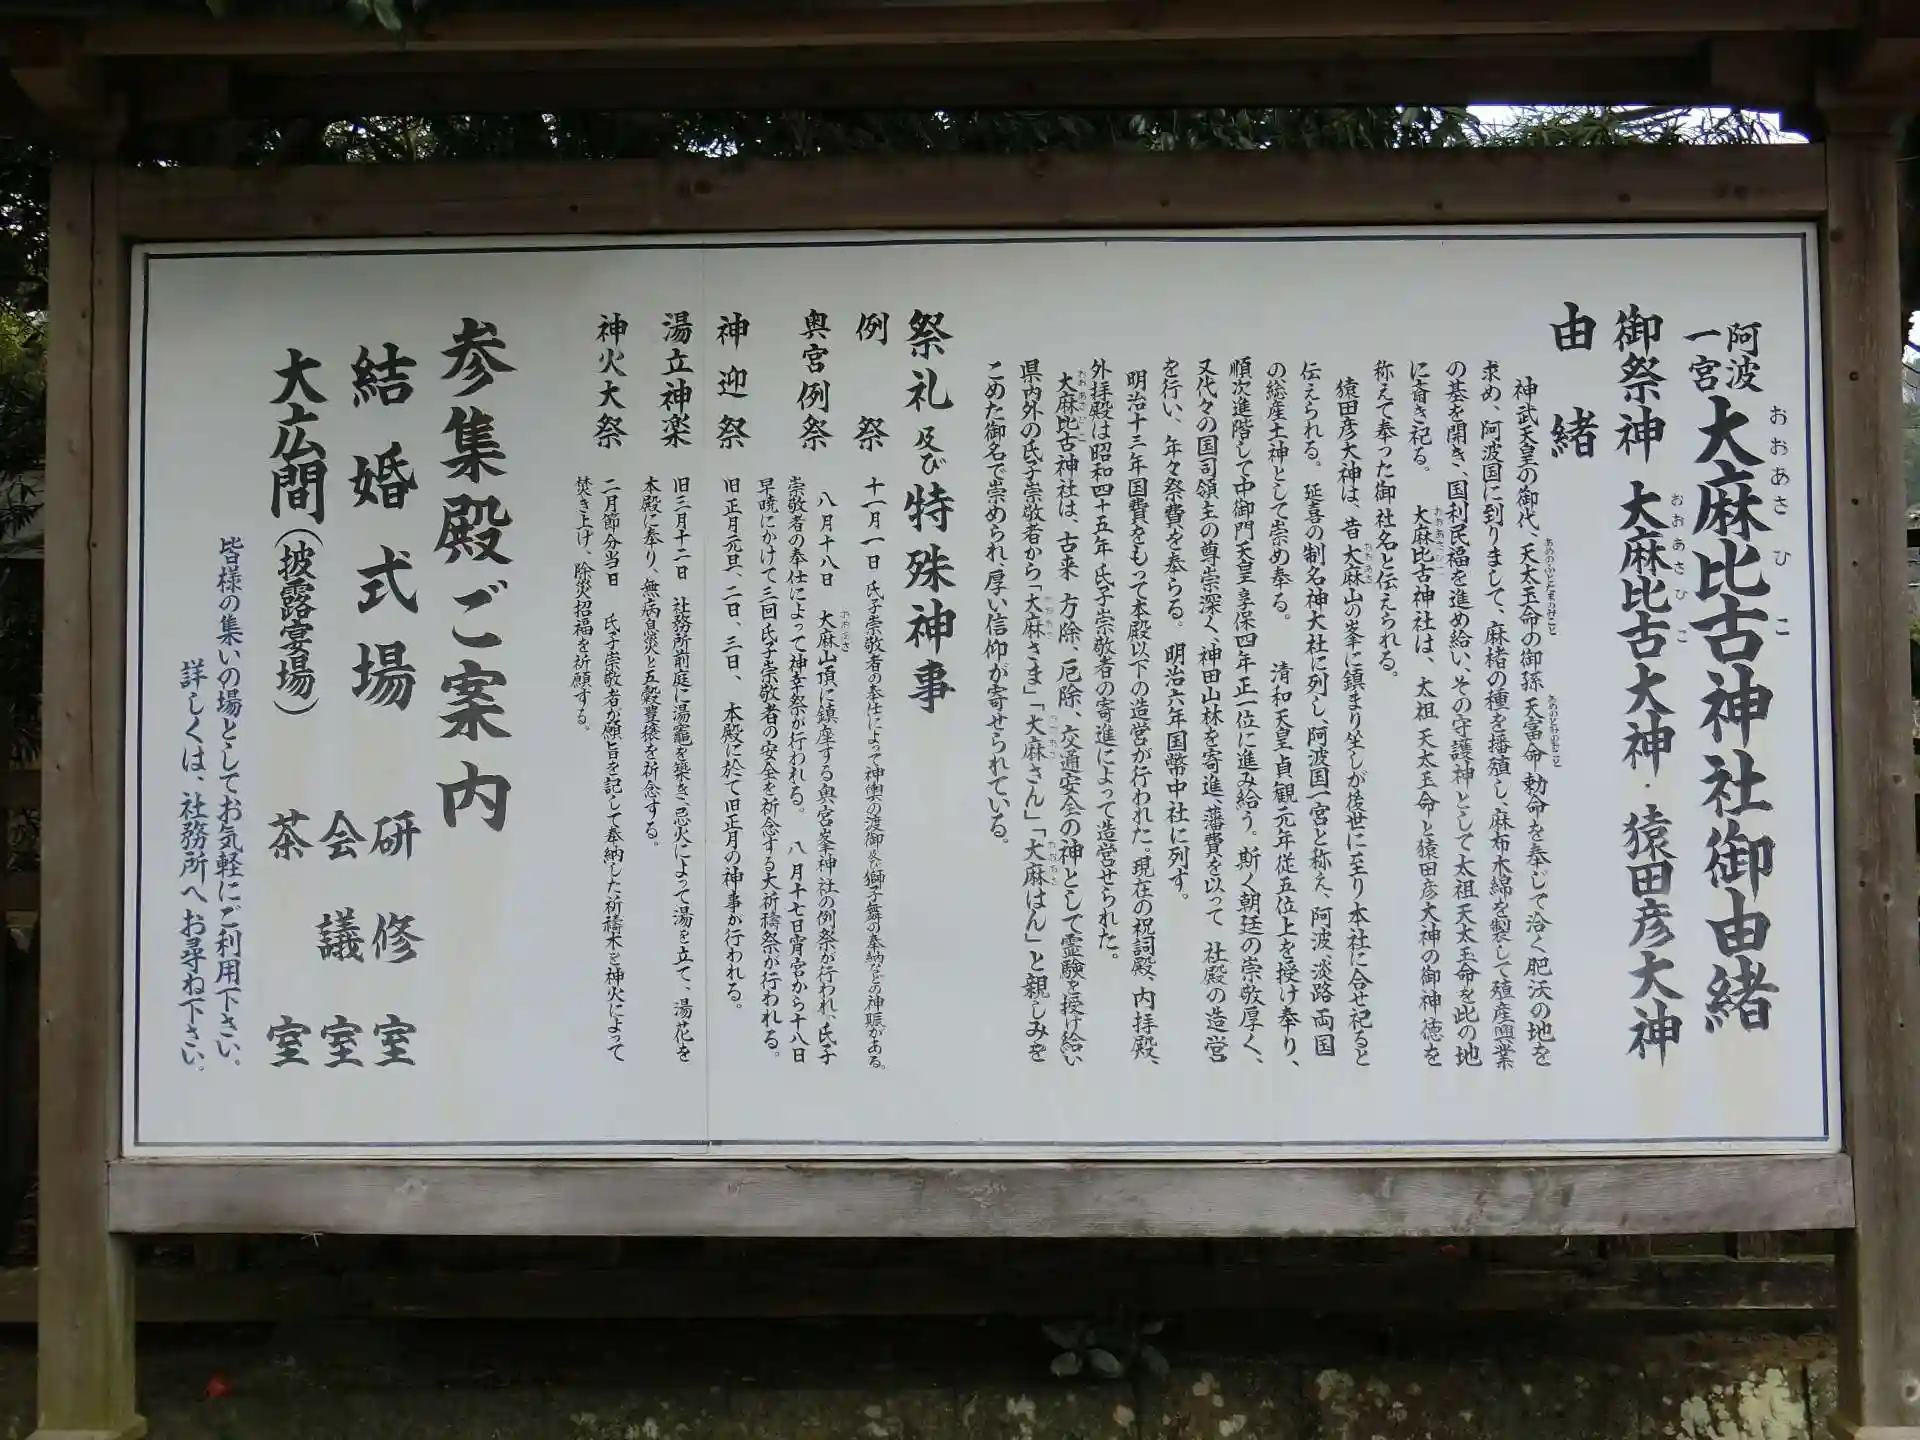 阿波
一宮 大麻比古神社御由緒
おおあさひこ
御祭神 大麻比古大神・猿田彦大神
おおあさひこ
由緒
神武天皇の御代、天太玉命の御孫 天富命 勅命を奉じて洽く肥沃の地を
求め、阿波国に到りまして、麻楮の種を播殖し、麻布木綿を製して殖産興業
の基を開き、国利民福を進め給い、その守護神として太祖 天太玉命を此の地
に斎き祀る。 大麻比古神社は、太祖 天太玉命と猿田彦大神の御神徳を
称えて奉った御社名と伝えられる。
猿田彦大神は、昔 大麻山の峯に鎮まり坐しが後世に至り本社に合せ祀ると
伝えられる。 延喜の制名神大社に列し、阿波国一宮と称え、阿波、淡路両国
の総産土神として崇め奉る。 清和天皇 貞観元年従五位上を授け奉り、
順次進階して中御門天皇 享保四年正一位に進み給う。斯く朝廷の崇敬厚く、
又代々の国司領主の尊崇深く、神田山林を寄進、藩費を以って 社殿の造営
を行い、年々祭費を奉らる。 明治六年国幣中社に列す。
明治十三年国費をもって本殿以下の造営が行われた。現在の祝詞殿、内拝殿、
外拝殿は昭和四十五年 氏子崇敬者の寄進によって造営せられた。
大麻比古神社は、古来 方除、厄除、交通安全の神として霊験を授け給い
県内外の氏子崇敬者から「大麻さま」「大麻さん」「大麻はん」と親しみを
こめた御名で崇められ、厚い信仰が寄せられている。
祭礼及び特殊神事
例祭 十一月一日 氏子崇敬者の奉仕によって神輿の渡御及び獅子舞の奉納などの神賑がある。
奥宮例祭 八月十八日 大麻山頂に鎮座する奥宮峯神社の例祭が行われ、氏子
崇敬者の奉仕によって神幸祭が行われる。 八月十七日宵宮から十八日
早暁にかけて三回 氏子崇敬者の安全を祈念する大祈祷祭が行われる。
神迎祭 旧正月元旦、二日、三日、 本殿に於て旧正月の神事が行われる。
湯立神楽 旧三月十二日 社務所前庭に湯竈を築き、忌火によって湯を立て、湯花を
本殿に奉り、無病息災と五穀豊穣を祈念する。
神火大祭 二月節分当日 氏子崇敬者が願旨を記して奉納した祈祷木を神火によって
焚き上げ、除災招福を祈願する。
参集殿ご案内
結婚式場 研修室
会議室
大広間(披露宴場) 茶室
皆様の集いの場としてお気軽にご利用下さい。
詳しくは、社務所へお尋ね下さい。